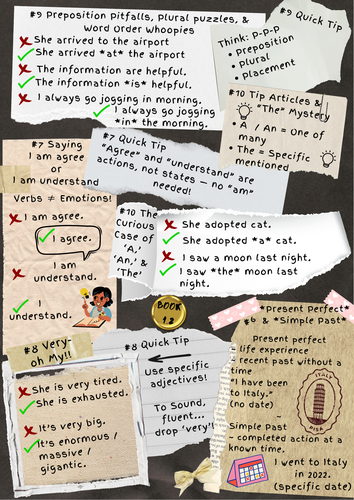 #9 Preposition Pitfalls, Plural puzzles, &
Word Order Whoopies
She arrived to the airport
She arrived *at* the airport
The information are helpful.
The information *is* helpful.
I always go jogging in morning.
I always go jogging
*in* the morning.
#9 Quick Tip
Think: P-P-P
• Preposition
• Plural
• Placement
#10 Tip Articles &
"The" Mystery
• A / An = One of
many
• The = Specific
mentioned
#7 Quick Tip
"Agree" and "understand" are
actions, not states — no "am"
needed!
#7 Saying
I am agree
or
I am understand
Verbs ≠ Emotions!
I am agree.
I agree.
I am
understand.
I
understand.
#10 The
Curious
Case of
'A,'
'An,' &
'The'
She adopted cat.
She adopted *a* cat.
I saw a moon last
night.
I saw *the* moon last
night.
BOOK
1.2
*Present Perfect*
#6 & *Simple Past*
Present perfect
– life experience /
recent past without a
time
"I have been
to Italy."
(no date)
–
Simple Past
– completed action at a
known time.
I went to Italy
in 2022.
(specific date)
ITALY
PISA
#8 Very-
oh My!!
She is very tired.
She is exhausted.
It's very big.
It's enormous /
massive /
gigantic.
#8 Quick Tip
Use specific
adjectives!
To Sound,
fluent...
drop 'very'!